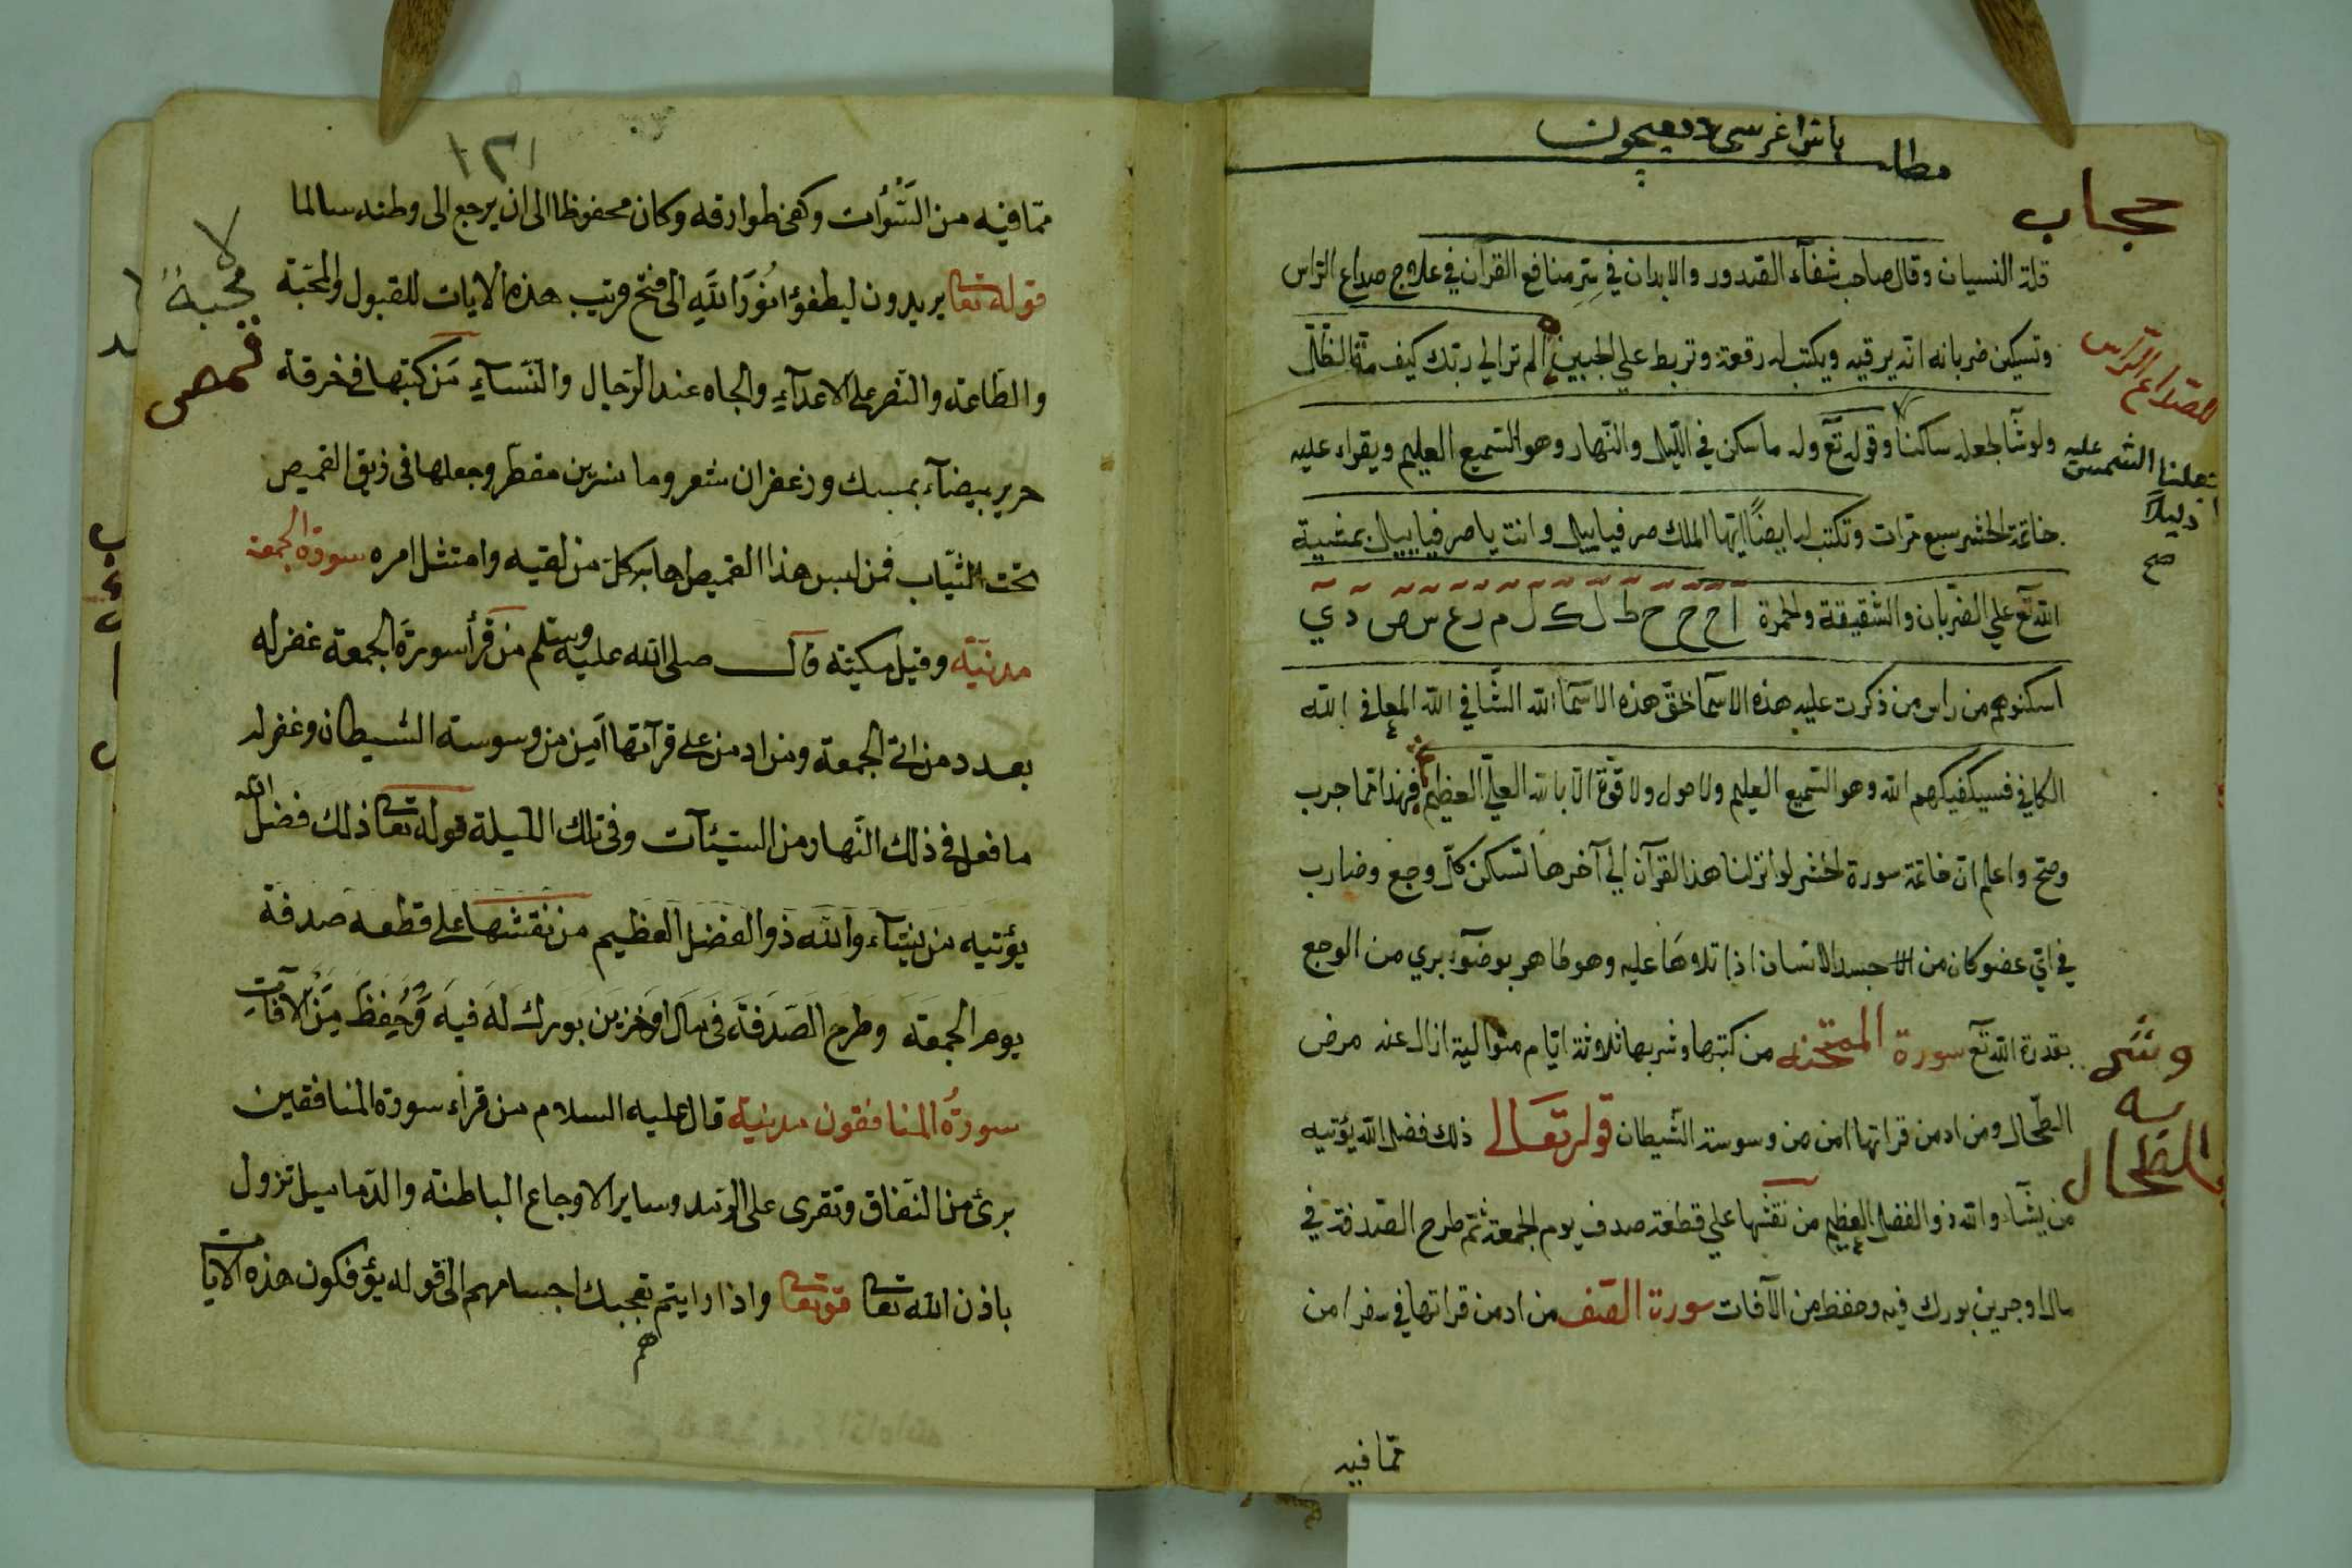 باش اغرسى دفعيچون
مطلب
حجاب
قلة النسيان وقال صاحب شفآء الصدور والابدان في سِرِ منافع القرآن في علاج صداع الرّاس
وتسكين ضربانه انّه يرقيه ويكتب له رقعة وتربط علي الجبين الم تر الي ربّك كيف مدّ الظّلّ
لصداع الرّاس
ولو شآ لجعله ساكناً وقوله تعّ وله ما سكن في اللّيل والنّهار وهو السّميع العليم ويقراء عليه
جعلنا الشمس عليه
دليلاً
صح
خاتمة الحشر سبع مرّات وتكتب له ايضاً ايّها الملك صرفياييل وانت يا صرفياييل بمشية
اللّه تعّ علي الضّربان والشّقيقة والحمرة ا ح ح ح ط ل ك ل م ر ع س ص د ي
اسكنوهم من راس من ذكرت عليه هذه الاسمآ بحقّ هذه الاسمآ اللّه الشّافي اللّه المعافي اللّه
الكافي فسيكفيكهم اللّه وهو السّميع العليم ولا حول ولا قوّة الّا باللّه العليّ العظيم فهذا ممّا جرب
وصحّ واعلم انّ خاتمة سورة الحشر لو انزلنا هذا القرآن الي آخرها تسكن كلّ وجع وضارب
في ايّ عضو كان من جسد الانسان اذا تلاوها عليه وهو طاهر بوضوء بري من الوجع
بقدرة اللّه تعّ سورة الممتحنه من كتبها وشربها ثلاثة ايّام متوالية ازال عنه مرض
وشى
يه
الطحال
الطّحال ومن ادمن قراتها امن من وسوسة الشّيطان قوله تعالى ذلك فضل اللّه يؤتيه
من يشآء واللّه ذو الفضل العظيم من نقشها علي قطعة صدف يوم الجمعة ثمّ طرح الصّدفة في
مال او جرين بورك فيه وحفظ من الآفات سورة الصّف من ادمن قراتها في سفر امن
ممّا فيه
١٢١
ممّا فيه من السّوأت وكفى طوارقه وكان محفوظا الى ان يرجع الى وطنه سالما
قوله تعا يريدون ليطفؤا نُورَ اللّهِ الى فتح قريب هذه الايات للقبول والمحبّة
لا
محبة
والطّاعة والنّصر على الاعدآءِ والجاه عند الرّجال والنّسآءِ مَن كتبها فى خرقة
قمص
حرير بيضآء بمسك وزعفران شعر وما نسرين مقطر وجعلها فى ذيق القميص
تحت الثيّاب فمن لبس هذا القميص هابه كلّ من لقيه وامتثل امره سورة الجمعة
مدنيّة وقيل مكيّة قال صلى اللّه عليه وسلّم من قرأ سورةَ الجمعة غفر له
بعدد من اتى الجمعة ومن ادمن على قرآتها اَمِنَ من وسوسة الشيطان وغفر له
ما فعل فى ذلك النّهار من السّيئآت وفى تلك الّليلة قوله تعا ذلك فضل اللّه
يؤتيه من يشآء واللّه ذو الفضل العظيم من نقشها على قطعه صدفة
يوم الجمعة وطرح الصّدفة فى مال او خزين بورك له فيه وَحُفِظَ مِنَ الآفات
سورةُ المنافقون مدنية قال عليه السلام من قراء سورة المنافقين
برئ من النّفاق وتقرى على الرّمد وساير الاوجاع الباطنة والدّماميل تزول
باذن اللّه تعا قو تعا واذا رايتم تعجبك اجسامهم الى قوله يؤفكون هذه الايات
هم